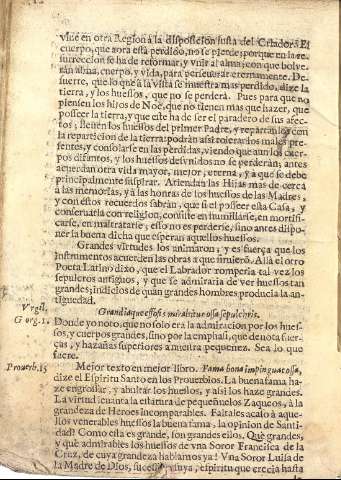 viue en otra Region à la disposicion justa del Criador. El
cuerpo, que aora està perdido, no se pierde; porque en la re-
surreccion se ha de reformar, y vnir al alma; con que bolve-
ràn alma, cuerpo, y vida, para perseverar eternamente. De
suerte, que lo que à la vista se muestra mas perdido, dize la
tierra, y los huessos, que no se perderà. Pues para que no
piensen los hijos de Noè, que no tienen mas que hazer, que
posseer la tierra, y que este ha de ser el paradero de sus afec-
tos, lleven los huessos del primer Padre, y repartanlos con
la reparticion de la tierra: podràn assi tolerar los males pre-
sentes, y consolarse en las perdidas, viendo que aun los cuer-
pos difuntos, y los huessos desvnidos no se perderàn; antes
acuerdan otra vida mayor, mejor, eterna, y à que se debe
principalmente aspirar. Atiendan las Hijas mas de cerca
à las memorias, y à las honras de los huessos de las Madres,
y con estos recuerdos sabràn, que si el posseer esta Casa, y
conservarla con religion, consiste en humillarse, en mortifi-
carse, en maltratarse, esto no es perderse, sino antes dispo-
ner la buena dicha que esperan aquellos huessos.
Grandes virtudes los animaron; y es fuerça que los
instrumentos acuerden las obras a que sirvierõ. Allà el otro
Poeta Latino dixo, que el Labrador romperia tal vez los
sepulcros antiguos, y que se admiraria de ver huessos tan
grandes; indicios de quan grandes hombres producia la an-
tiguedad.
Virgil.
Grandiaque effossis mirabitur ossa sepulchris.
Georg. 1.
Donde yo noto, que no solo era la admiracion por los hues-
sos, y cuerpos grandes, sino por la emphasi, que denota fuer-
ças, y hazañas superiores a nuestra pequeñez. Sea lo que
fuere.
Proverb. 15
Mejor texto en mejor libro. Fama bona impinguat ossa,
dize el Espiritu Santo en los Proverbios. La buena fama ha-
ze engrossar, y abultar los huessos, y assi los haze grandes.
La virtud levanta la estatura de pequeñuelos Zaqueos, à la
grandeza de Heroes incomparables. Faltales acaso à aque-
llos venerables huessos la buena fama, la opinion de Santi-
dad? Como esta es grande, son grandes ellos. Què grandes,
y què admirables los huessos de vna Soror Francisca de la
Cruz, de cuya grandeza hablamos ya! Vna Soror Luisa de
la Madre de Dios, sucessora suya, espiritu que crecia hasta